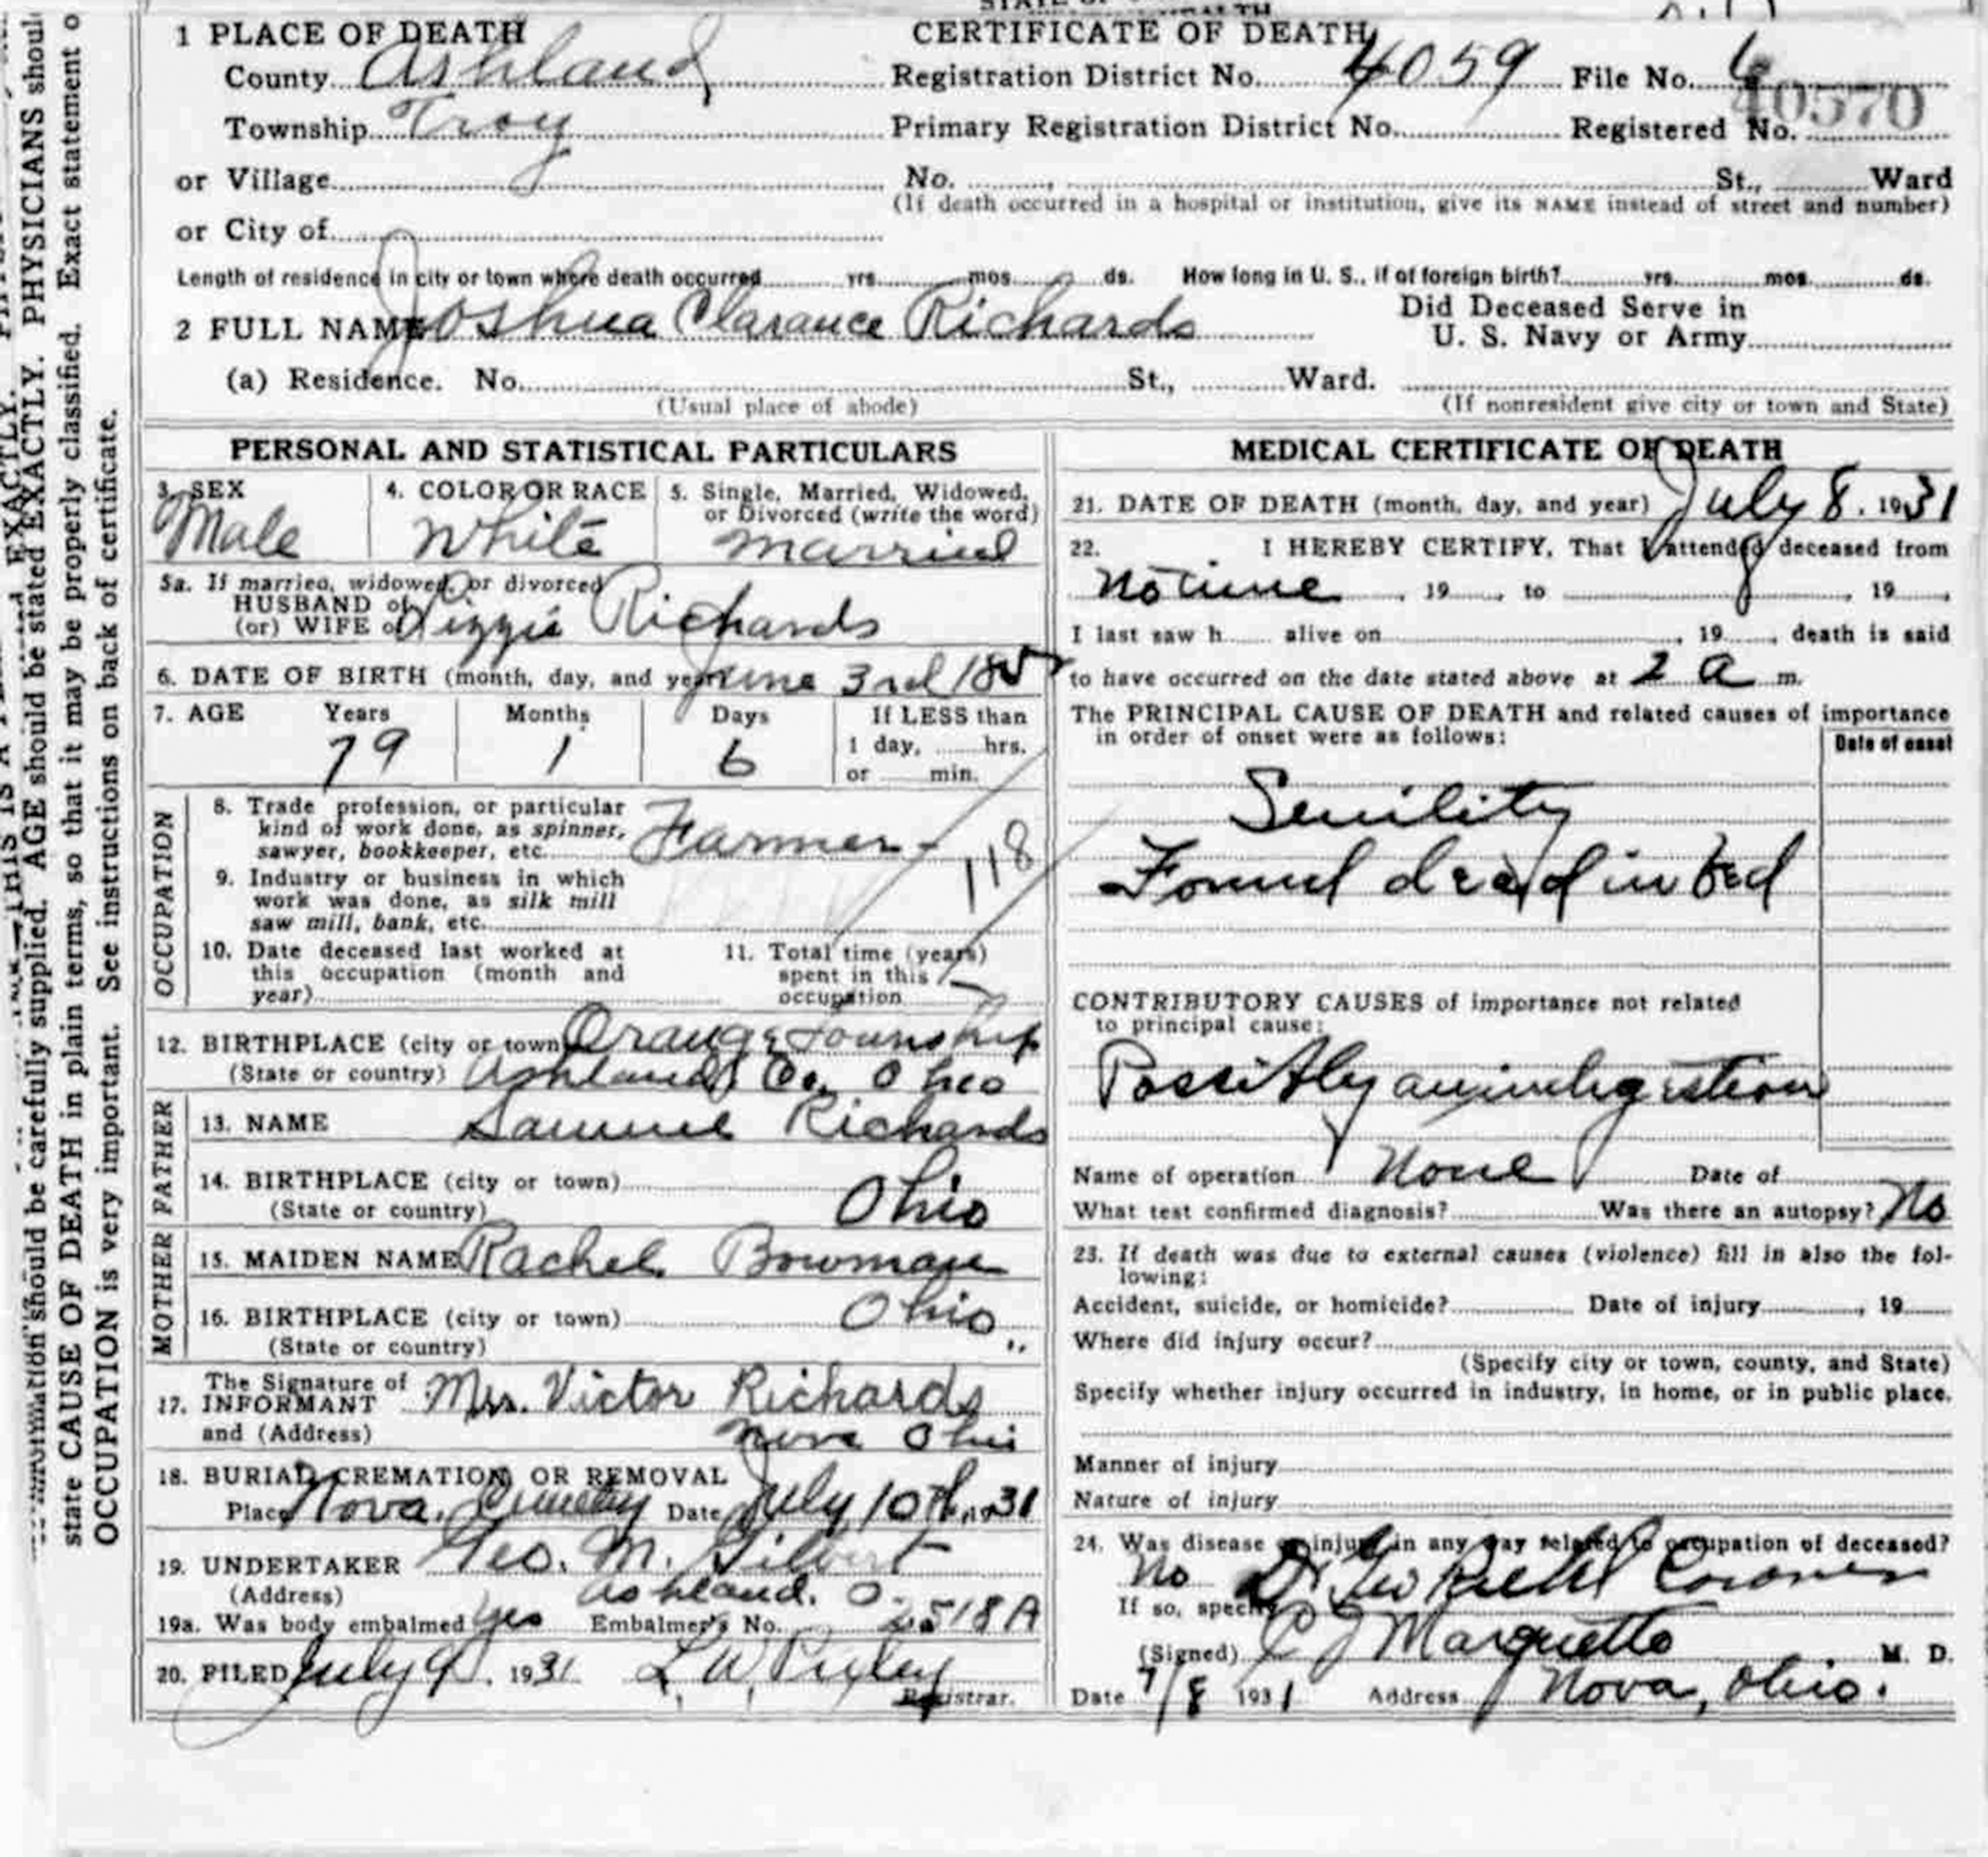 1 PLACE OF DEATH
CERTIFICATE OF DEATH
County Ashland Registration District No. 4059 File No.
Township Troy Primary Registration District No. Registered No. 40570
or Village No. St., Ward
(If death occurred in a hospital or institution, give its NAME instead of street and number)
or City of
Length of residence in city or town where death occurred yrs. mos. ds. How long in U. S., if of foreign birth? yrs. mos. ds.
2 FULL NAME Joshua Clarance Richards
Did Deceased Serve in
U. S. Navy or Army
(a) Residence. No. St., Ward.
(Usual place of abode) (If nonresident give city or town and State)
PERSONAL AND STATISTICAL PARTICULARS
3. SEX 4. COLOR OR RACE 5. Single, Married, Widowed,
or Divorced (write the word)
Male White Married
5a. If married, widowed, or divorced
HUSBAND of
(or) WIFE of Lizzie Richards
6. DATE OF BIRTH (month, day, and year) June 3rd
7. AGE Years Months Days If LESS than
79 1 6 1 day, hrs.
or min.
OCCUPATION
8. Trade profession, or particular
kind of work done, as spinner,
sawyer, bookkeeper, etc. Farmer
118
9. Industry or business in which
work was done, as silk mill
saw mill, bank, etc.
10. Date deceased last worked at
this occupation (month and
year)
11. Total time (years)
spent in this
occupation
12. BIRTHPLACE (city or town) Orange Township
(State or country) Ashland Co. Ohio
FATHER
13. NAME Samuel Richards
14. BIRTHPLACE (city or town)
(State or country) Ohio
MOTHER
15. MAIDEN NAME Rachel Bowman
16. BIRTHPLACE (city or town) Ohio
(State or country) "
The Signature of
17. INFORMANT Mrs. Victor Richards
and (Address) Nova Ohio
18. BURIAL, CREMATION, OR REMOVAL
Place Nova, Cemetery Date July 10th, 1931
19. UNDERTAKER Geo. M. Gilbert
(Address) Ashland, O.
19a. Was body embalmed yes Embalmer's No. 2518A
20. FILED July 9, 1931
Registrar.
MEDICAL CERTIFICATE OF DEATH
21. DATE OF DEATH (month, day, and year) July 8, 1931
22. I HEREBY CERTIFY, That I attended deceased from
No time, 19 to , 19
I last saw h alive on , 19 , death is said
to have occurred on the date stated above at 2 a m.
The PRINCIPAL CAUSE OF DEATH and related causes of importance
in order of onset were as follows:
Date of onset
Senility
Found dead in bed
CONTRIBUTORY CAUSES of importance not related
to principal cause:
Possibly an indigestion
Name of operation None Date of
What test confirmed diagnosis? Was there an autopsy? No
23. If death was due to external causes (violence) fill in also the fol-
lowing:
Accident, suicide, or homicide? Date of injury , 19
Where did injury occur?
(Specify city or town, county, and State)
Specify whether injury occurred in industry, in home, or in public place.
Manner of injury
Nature of injury
24. Was disease or injury in any way related to occupation of deceased?
No Dr Geo Coroner
If so, specify
(Signed) C J Marquette M. D.
Date 7/8 1931 Address Nova, Ohio.
should be carefully supplied. AGE should be stated EXACTLY. PHYSICIANS should
state CAUSE OF DEATH in plain terms, so that it may be properly classified. Exact statement o
OCCUPATION is very important. See instructions on back of certificate.